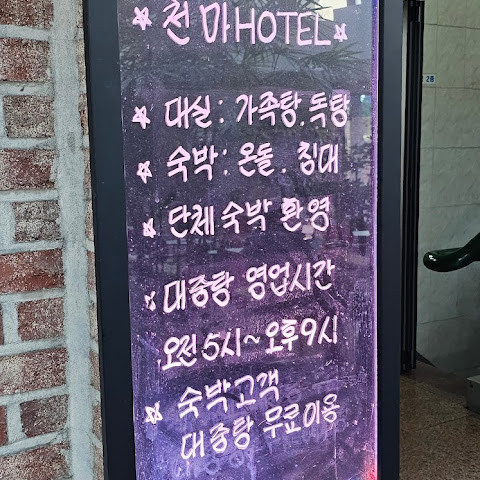 천마 HOTEL
대실 : 가족탕. 독탕
숙박 : 온돌. 침대
단체 숙박 환영
대중탕 영업시간
오전 5시~오후 9시
숙박고객
대중탕 무료이용